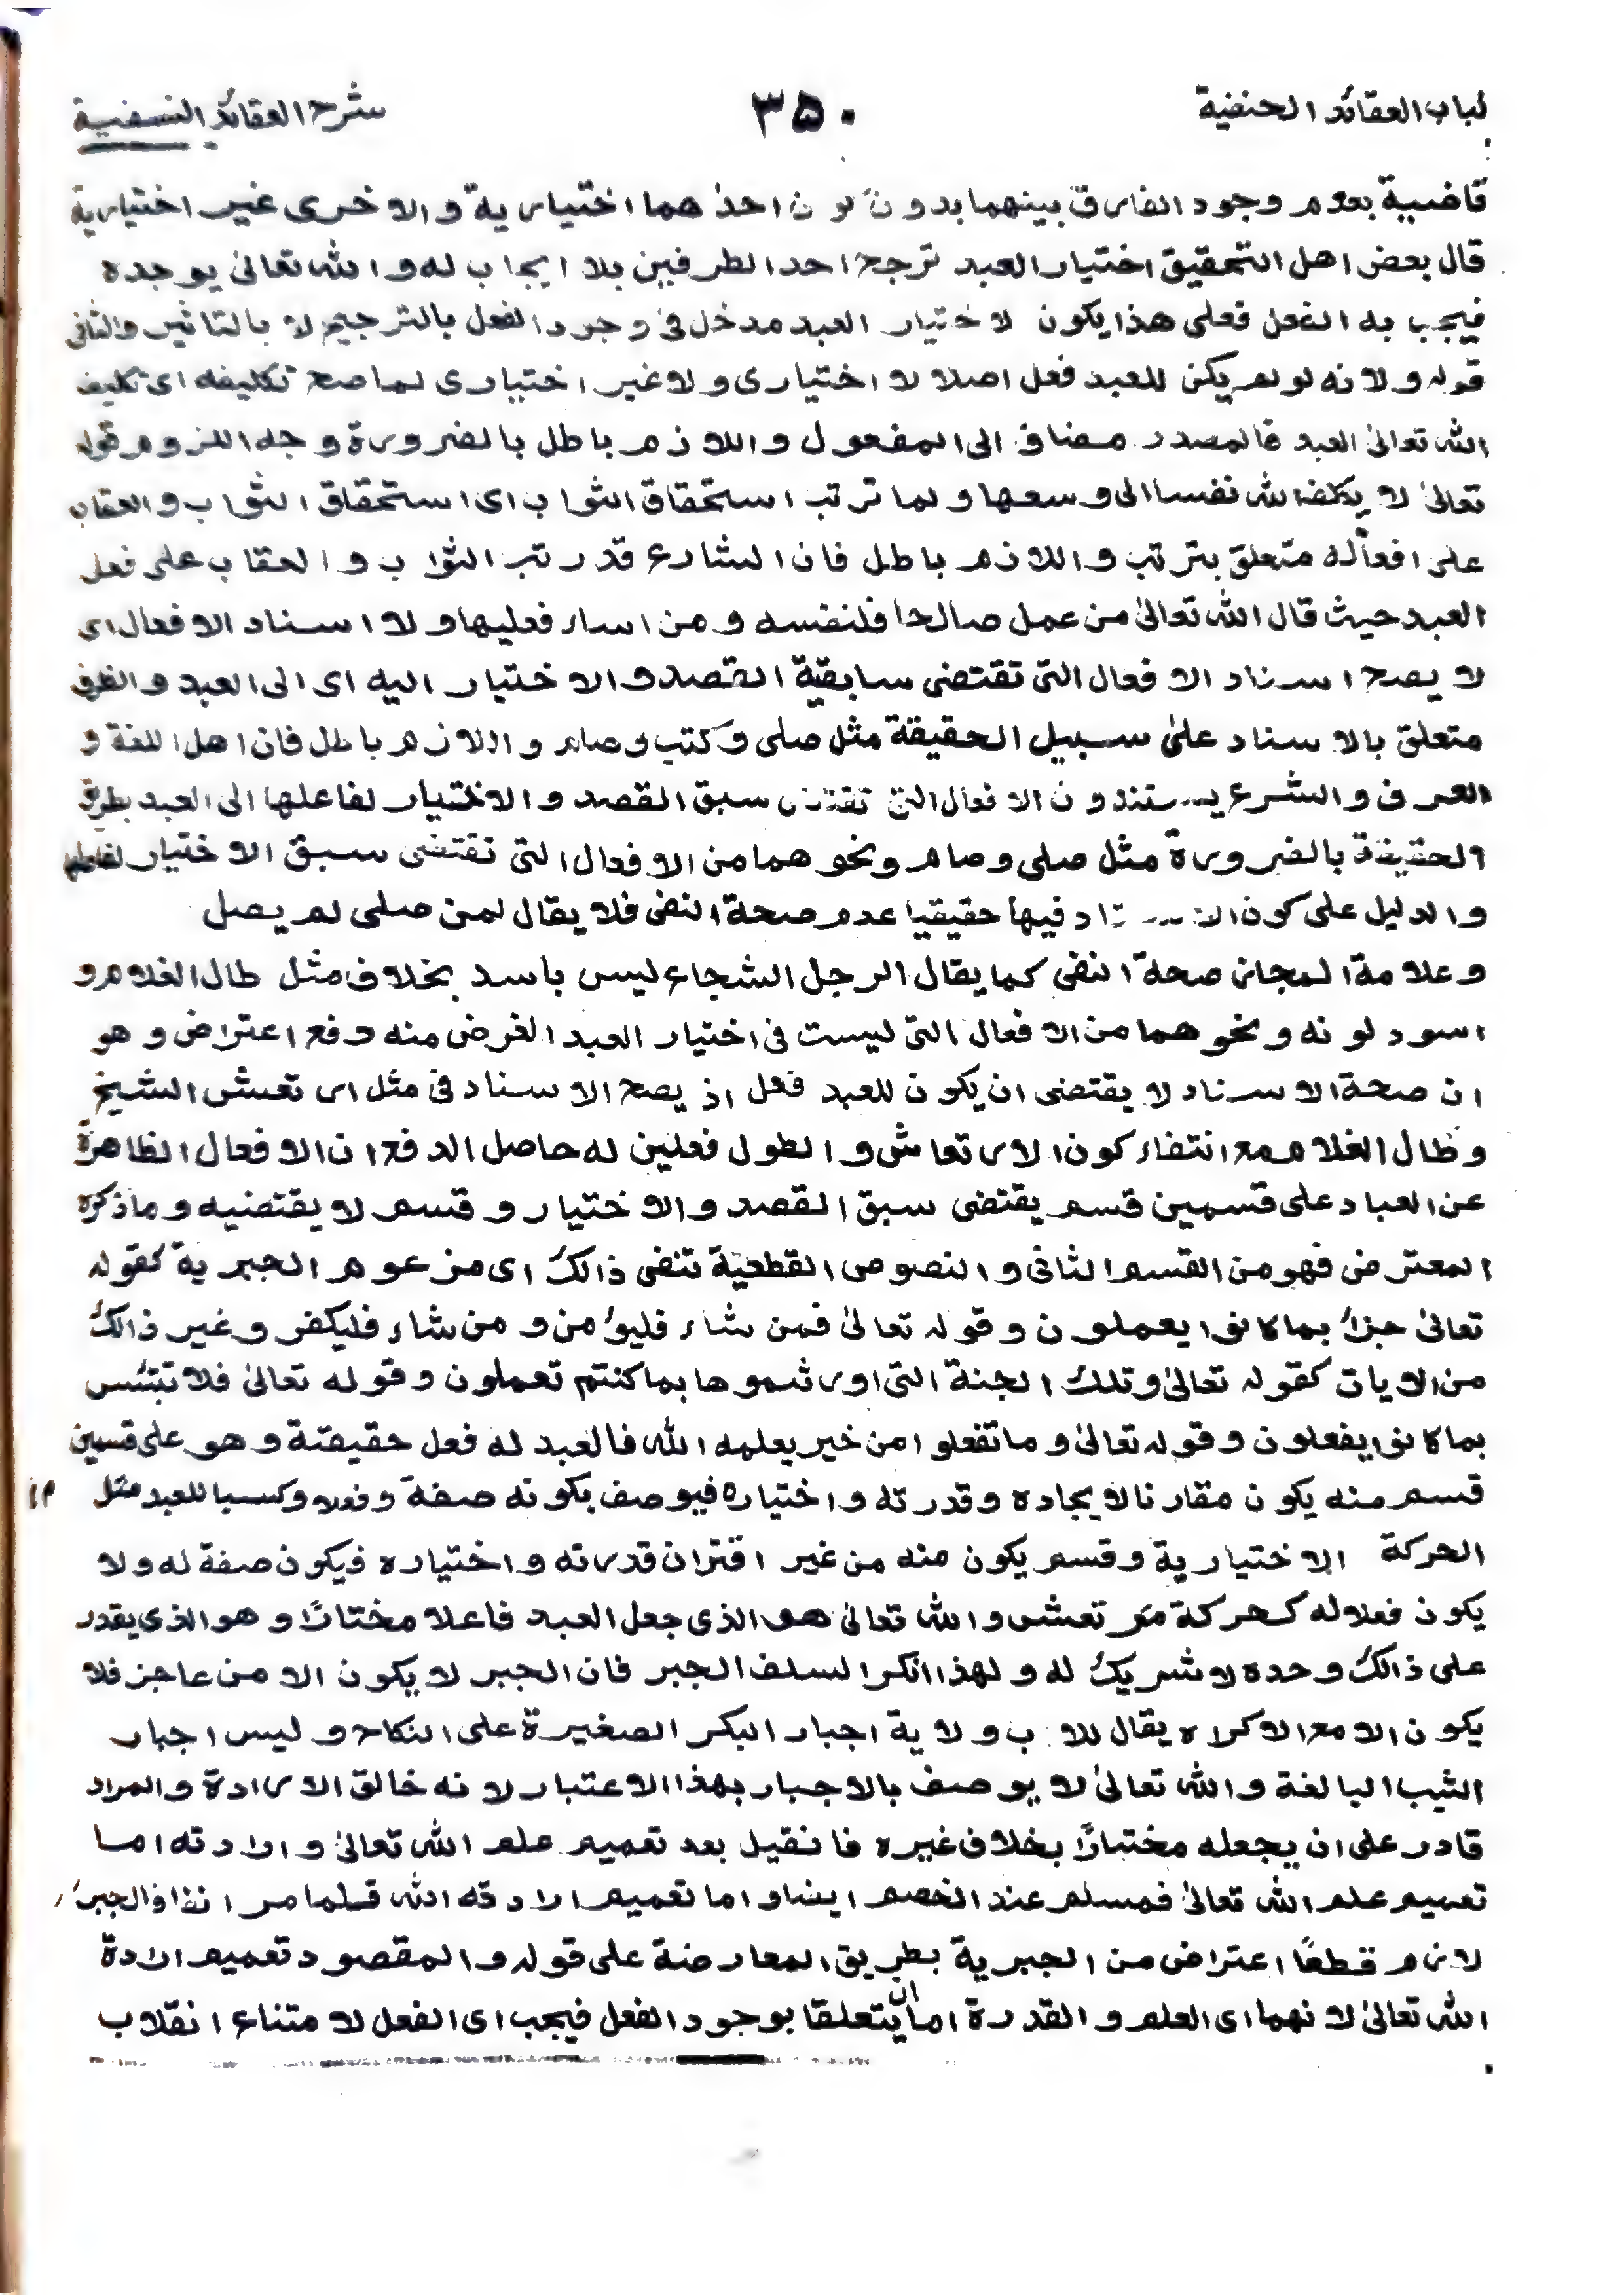 لباب العقائد الحنفية ۳۵۰ شرح العقائد النسفية
قاضية بعدم وجود الفارق بينهما بدون كون احدٰهما اختيارية والاخرى غير اختيارية
قال بعض اهل التحقيق اختيار العبد ترجح احد الطرفين بلا ايجاب له و الله تعالىٰ يوجده
فيجب به الفعل فعلى هذا يكون لاختيار العبد مدخل فى وجود الفعل بالترجيح لا بالتاثير والثانى
قوله ولانه لو لم يكن للعبد فعل اصلا لا اختيارى ولا غير اختيارى لما صح تكليفه اى تكليف
الله تعالىٰ العبد فالمصدر مضاف الى المفعول و اللازم باطل بالضرورة وجه اللزوم قوله
تعالىٰ لا يكلف الله نفسا الى وسعها و لما ترتب استحقاق الثواب اى استحقاق الثواب و العقاب
على افعاله متعلق بترتب و اللازم باطل فان الشارع قد رتب الثواب و العقاب على فعل
العبد حيث قال الله تعالىٰ من عمل صالحا فلنفسه و من اساء فعليها و لا اسناد الافعال اى
لا يصح اسناد الافعال التى تقتضى سابقية القصد و الاختيار اليه اى الى العبد و الظرف
متعلق بالاسناد علىٰ سبيل الحقيقة مثل صلى و كتب و صام و اللازم باطل فان اهل اللغة و
العرف و الشرع يسندون الافعال التى تقتضى سبق القصد و الاختيار لفاعلها الى العبد بطرق
الحقيقة بالضرورة مثل صلى و صام و نحوهما من الافعال التى تقتضى سبق الاختيار لفاعلها
و الدليل على كون الاسناد فيها حقيقيا عدم صحة النفى فلا يقال لمن صلى لم يصل
و علامة المجاز صحة النفى كما يقال الرجل الشجاع ليس باسد بخلاف مثل طال الغلام و
اسود لونه و نحوهما من الافعال التى ليست فى اختيار العبد الغرض منه دفع اعتراض و هو
ان صحة الاسناد لا يقتضى ان يكون للعبد فعل اذ يصح الاسناد فى مثل ارتعش الشيخ
و طال الغلام مع انتفاء كون الارتعاش و الطول فعلين له حاصل الدفع ان الافعال الظاهرة
عن العباد على قسمين قسم يقتضى سبق القصد و الاختيار و قسم لا يقتضيه و ما ذكره
المعترض فهو من القسم الثانى و النصوص القطعية تنفى ذالك اى مزعوم الجبرية كقوله
تعالىٰ جزاء بما كانوا يعملون و قوله تعالىٰ فمن شاء فليؤمن و من شاء فليكفر و غير ذالك
من الايات كقوله تعالىٰ و تلك الجنة التى اورثتموها بما كنتم تعملون و قوله تعالىٰ فلا تبتئس
بما كانوا يفعلون و قوله تعالىٰ و ما تفعلوا من خير يعلمه الله فالعبد له فعل حقيقة و هو على قسمين
قسم منه يكون مقارنا لايجاده و قدرته و اختياره فيوصف بكونه صفة و فعلا و كسبا للعبد مثل
الحركة الاختيارية و قسم يكون منه من غير اقتران قدرته و اختياره فيكون صفة له و لا
يكون فعلا له كحركة مرتعش و الله تعالىٰ هو الذى جعل العبد فاعلا مختارًا و هو الذى يقدر
على ذالك وحده لا شريك له و لهذا انكر السلف الجبر فان الجبر لا يكون الا من عاجز فلا
يكون الا مع الاكراه يقال للاب ولاية اجبار البكر الصغيرة على النكاح و ليس اجبار
الثيب البالغة و الله تعالىٰ لا يوصف بالاجبار بهذا الاعتبار لانه خالق الارادة و المراد
قادر على ان يجعله مختارًا بخلاف غيره فان قيل بعد تعميم علم الله تعالىٰ و ارادته اما
تعميم علم الله تعالىٰ فمسلم عند الخصم ايضا و اما تعميم ارادته الله فلما مر انفا فالجبر
لازم قطعًا اعتراض من الجبرية بطريق المعارضة على قوله و المقصود تعميم ارادة
الله تعالىٰ لانهما اى العلم و القدرة اما ان يتعلقا بوجود الفعل فيجب اى الفعل لامتناع انقلاب